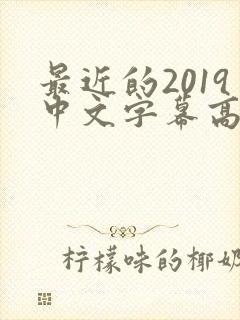 最近的2019
中文字幕高
柠檬味的椰奶